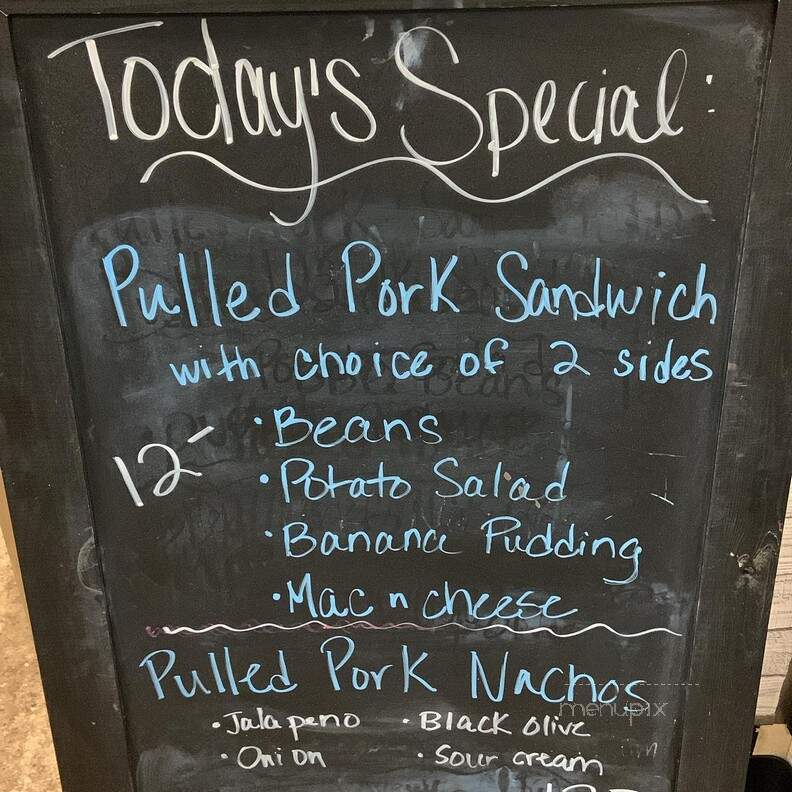 Today's Special:
Pulled Pork Sandwich
with choice of 2 sides
12-
• Beans
• Potato Salad
• Banana Pudding
• Mac n cheese
Pulled Pork Nachos
menupix
• Jalapeno • Black olive
• Onion • Sour cream